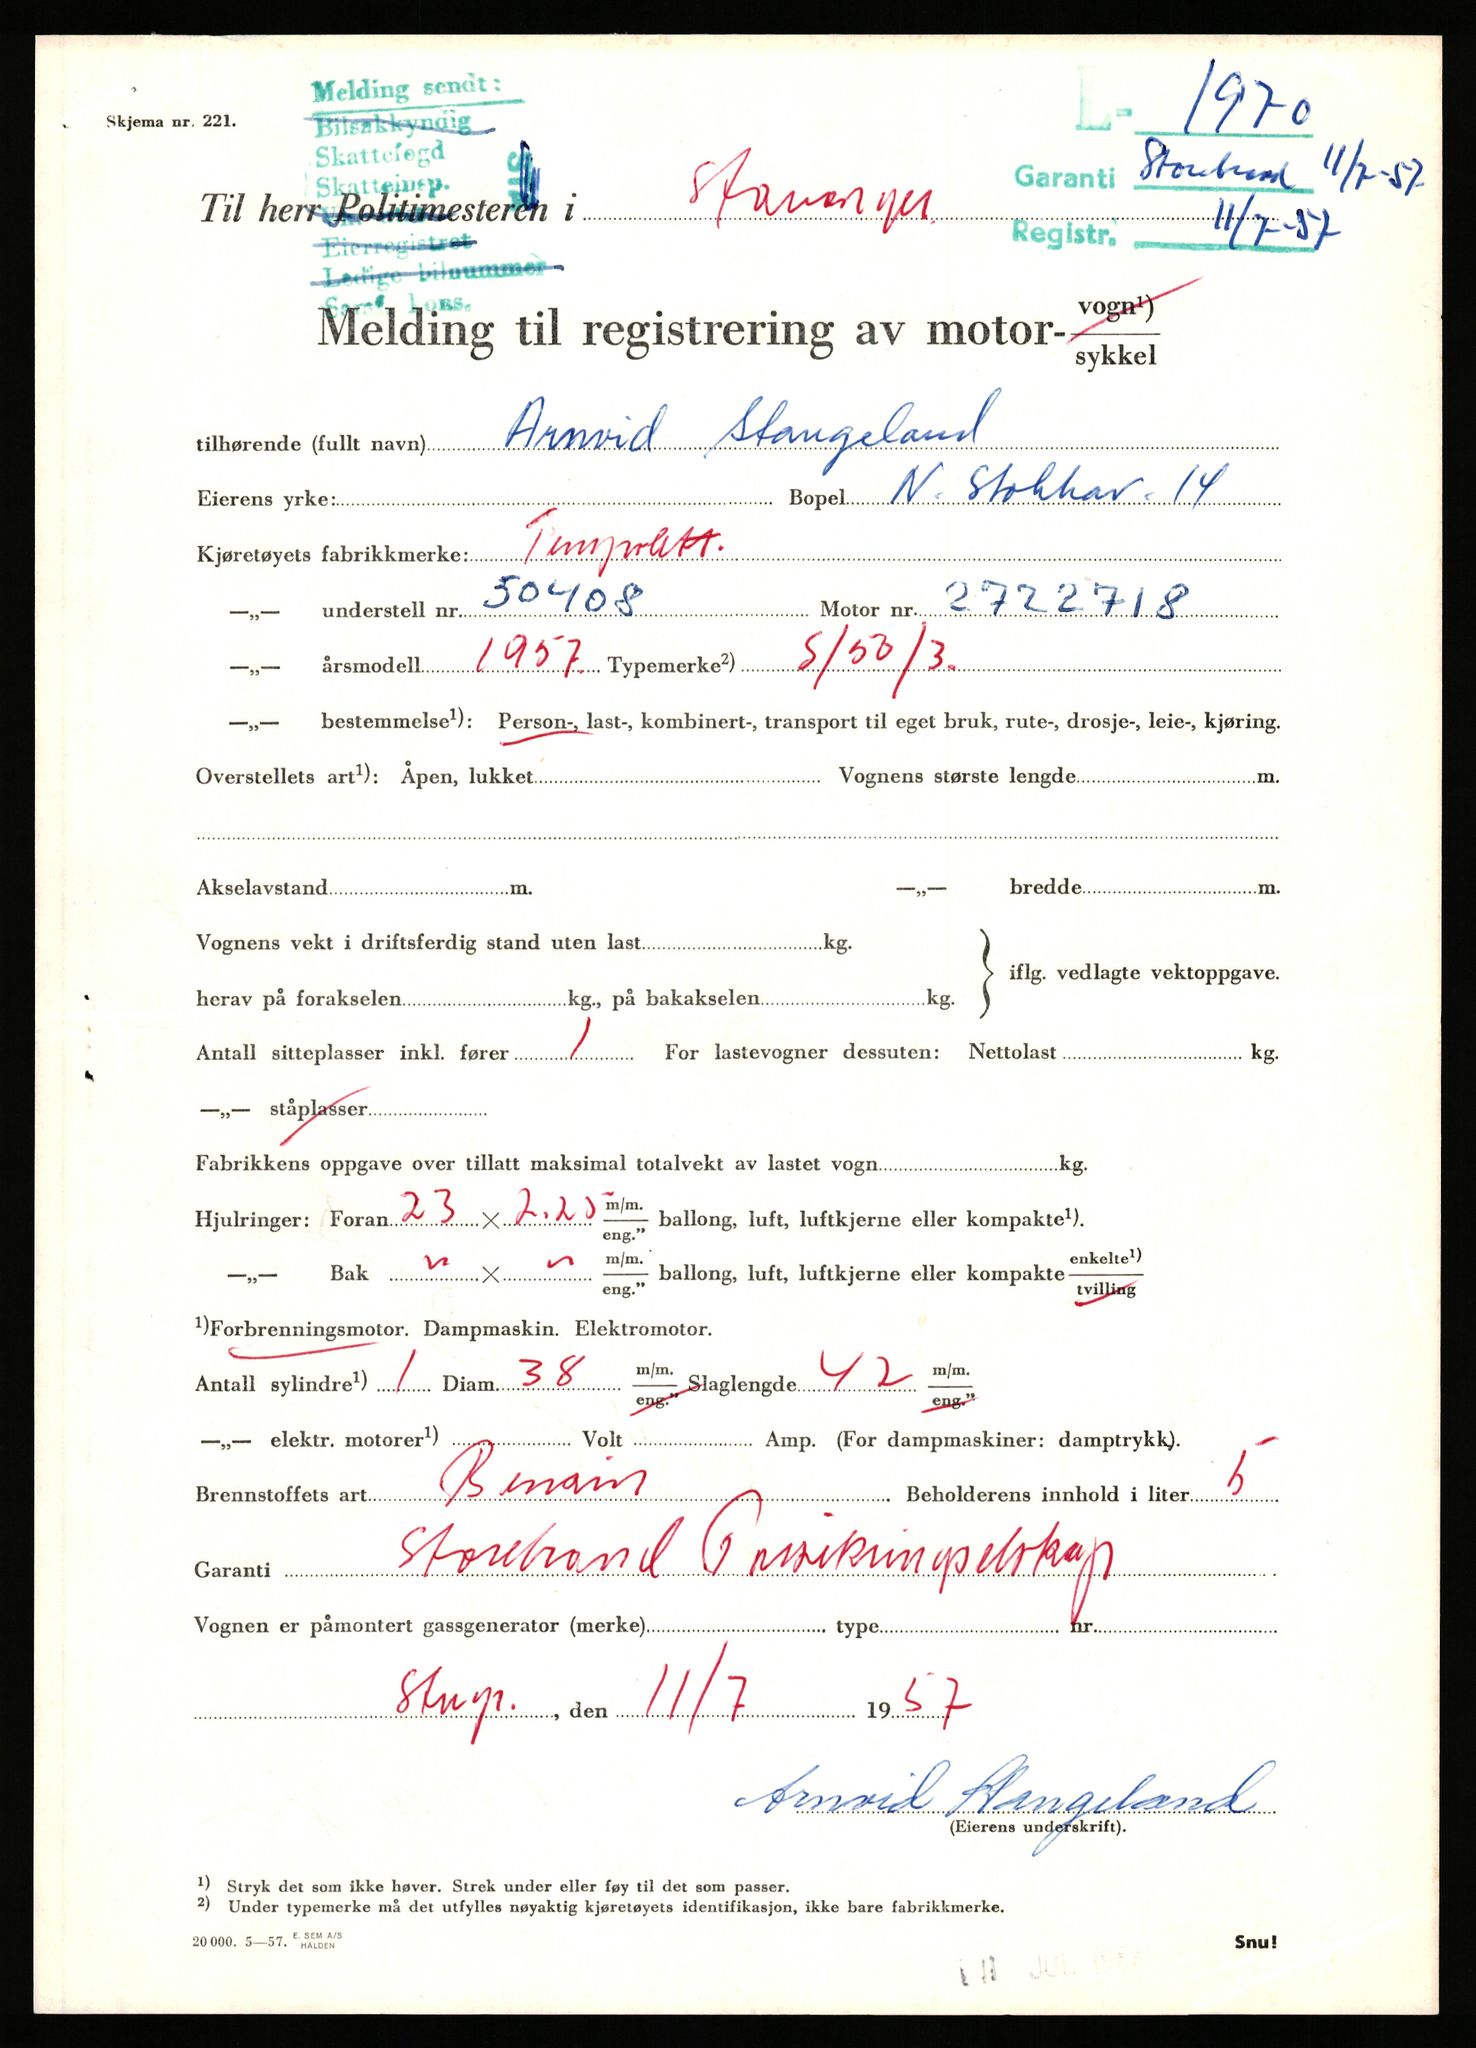 Skjema nr. 221.
Melding sendt:
Bilsakkyndig
Skattefogd
Skatteinsp.
Eierregistret
Ledige bilnummer
L- 1970
Garanti Storebrand 11/7-57
Registr. 11/7-57
Til herr Politimesteren i Stavanger
Melding til registrering av motor-vogn¹)
sykkel
tilhørende (fullt navn) Arnvid Stangeland
Eierens yrke: Bopel N. Stokkav. 14
Kjøretøyets fabrikkmerke: Tempolett.
—„— understell nr. 50408 Motor nr. 2722718
—„— årsmodell 1957 Typemerke²) S/50/3.
—„— bestemmelse¹): Person-, last-, kombinert-, transport til eget bruk, rute-, drosje-, leie-, kjøring.
Overstellets art¹): Åpen, lukket Vognens største lengde m.
Akselavstand m. —„— bredde m.
Vognens vekt i driftsferdig stand uten last kg.
iflg. vedlagte vektoppgave.
herav på forakselen kg., på bakakselen kg.
Antall sitteplasser inkl. fører 1 For lastevogner dessuten: Nettolast kg.
—„— ståplasser
Fabrikkens oppgave over tillatt maksimal totalvekt av lastet vogn kg.
Hjulringer: Foran 23 × 2.25 m/m. eng." ballong, luft, luftkjerne eller kompakte¹).
—„— Bak " × " m/m. eng." ballong, luft, luftkjerne eller kompakte enkelte¹) tvilling
¹)Forbrenningsmotor. Dampmaskin. Elektromotor.
Antall sylindre¹) 1 Diam. 38 m/m. eng." Slaglengde 42 m/m. eng."
—„— elektr. motorer¹) Volt Amp. (For dampmaskiner: damptrykk).
Brennstoffets art Bensin Beholderens innhold i liter 5
Garanti Storebrand Forsikringselskap
Vognen er påmontert gassgenerator (merke) type nr.
Stvgr. , den 11/7 1957
Arnvid Stangeland
(Eierens underskrift).
¹) Stryk det som ikke høver. Strek under eller føy til det som passer.
²) Under typemerke må det utfylles nøyaktig kjøretøyets identifikasjon, ikke bare fabrikkmerke.
20 000. 5—57. E. SEM A/S HALDEN
Snu!